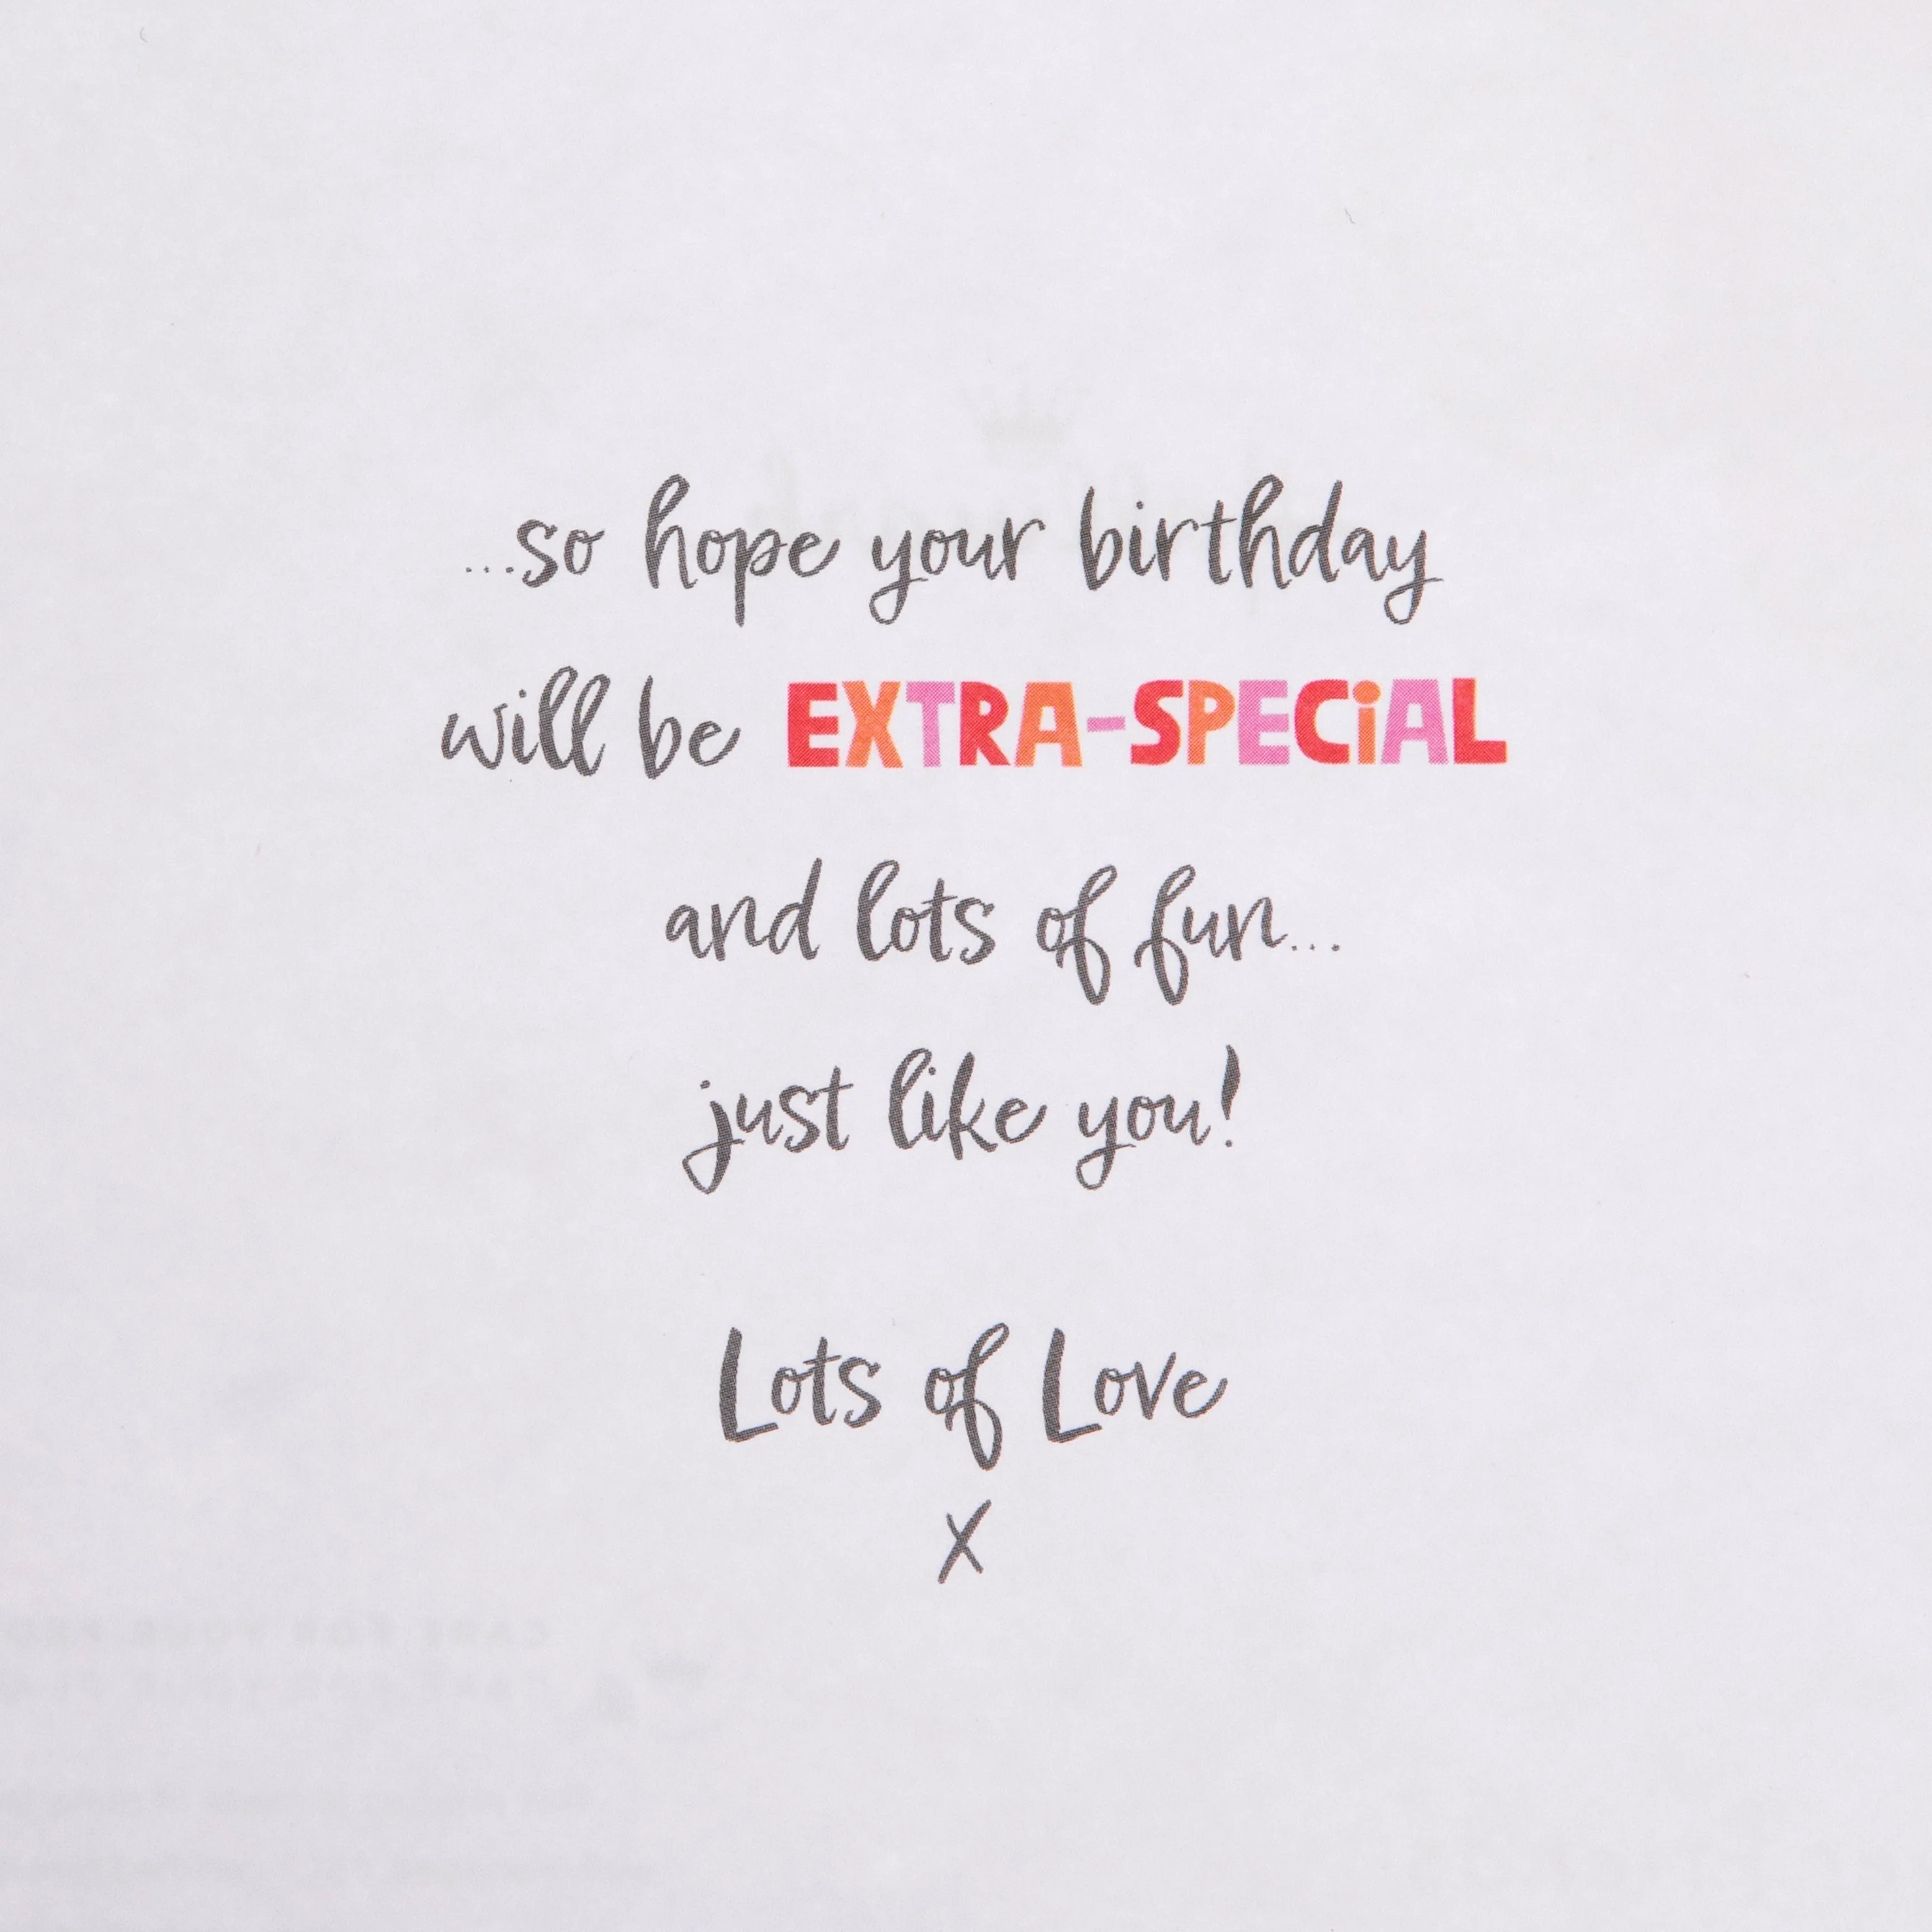 ...so hope your birthday
will be EXTRA-SPECiAL
and lots of fun...
just like you!
Lots of Love
X